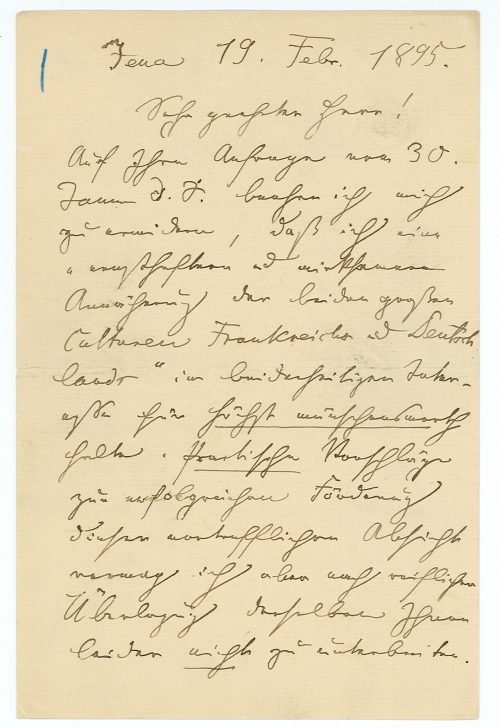 Jena 19. Febr. 1895.
Sehr geehrter Herr!
Auf Ihre Anfrage vom 30.
Januar d. J. beehre ich mich
zu erwidern, daß ich eine
„ernsthaftere u wirksamere
Annäherung der beiden großen
Culturen Frankreichs u Deutsch
lands" im beiderseitigen Inter-
esse für höchst wünschenswerth
halte. Praktische Vorschläge
zur erfolgreichen Förderung
dieser vortrefflichen Absicht
vermag ich aber nach reiflicher
Überlegung derselben Ihnen
leider nicht zu unterbreiten.